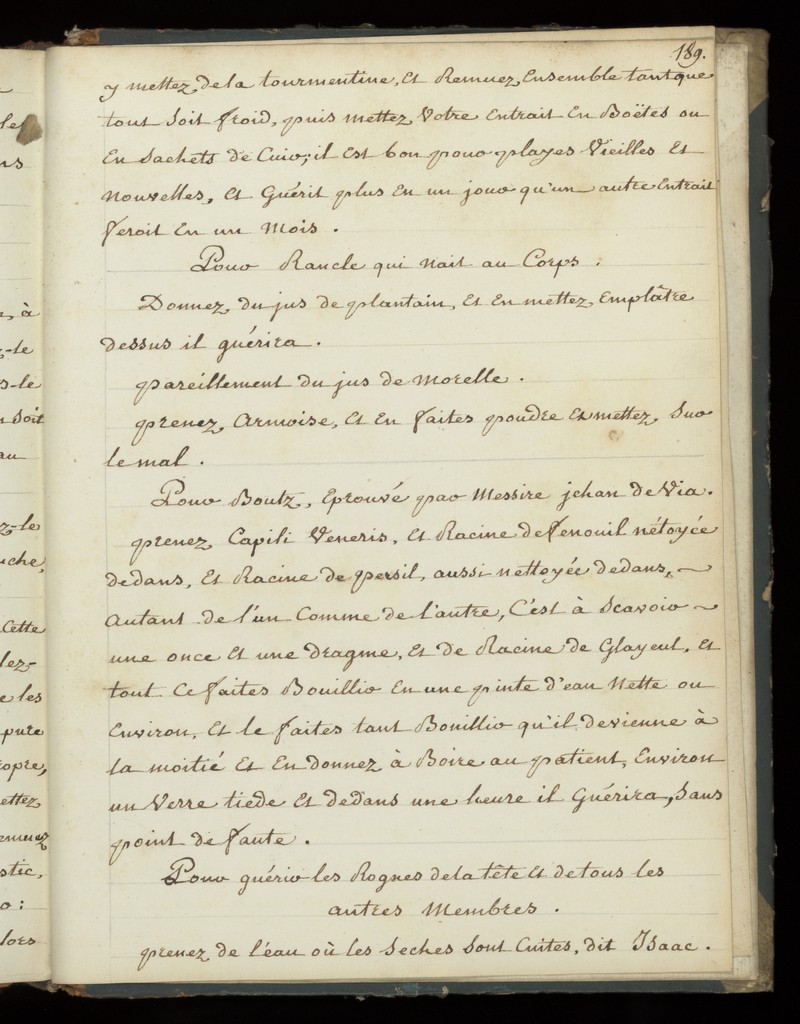 189.
y mettez de la tourmentine, Et Remuez Ensemble tant que
tout soit froid, puis mettez Votre Entrait En Boëtes ou
En sachets de Cuir; il Est bon pour playes Vieilles Et
nouvelles, Et Guérit plus En un jour qu'un autre Entrait
feroit En un Mois.
Pour Rancle qui nait au Corps.
Donnez du jus de plantain, Et En mettez Emplâtre
dessus il guérira.
pareillement du jus de Morelle.
prenez Armoise, Et En faites poudre Et mettez sur
le mal.
Pour Boutz, Eprouvé par Messire jehan de Via.
prenez Capili Veneris, Et Racine de fenouil nétoyée
dedans, Et Racine de persil, aussi nettoyée dedans, ~
autant de l'un Comme de l'autre, C'est à Scavoir ~
une once Et une dragme, Et de Racine de Glayeul, Et
tout Ce faites Bouillir En une pinte d'eau Nette ou
Environ, Et le faites tant Bouillir qu'il devienne à
la moitié Et En donnez à Boire au patient, Environ
un Verre tiede Et dedans une heure il Guérira, sans
point de faute.
Pour guérir les Rognes de la tête Et de tous les
autres Membres.
prenez de l'éau où les seches sont Cuites, dit Isaac.
à
-le
s-le
soit
au
z-le
uche,
Cette
lez-
e les
pure
opre,
ettez
emuez
stic,
o:
lors